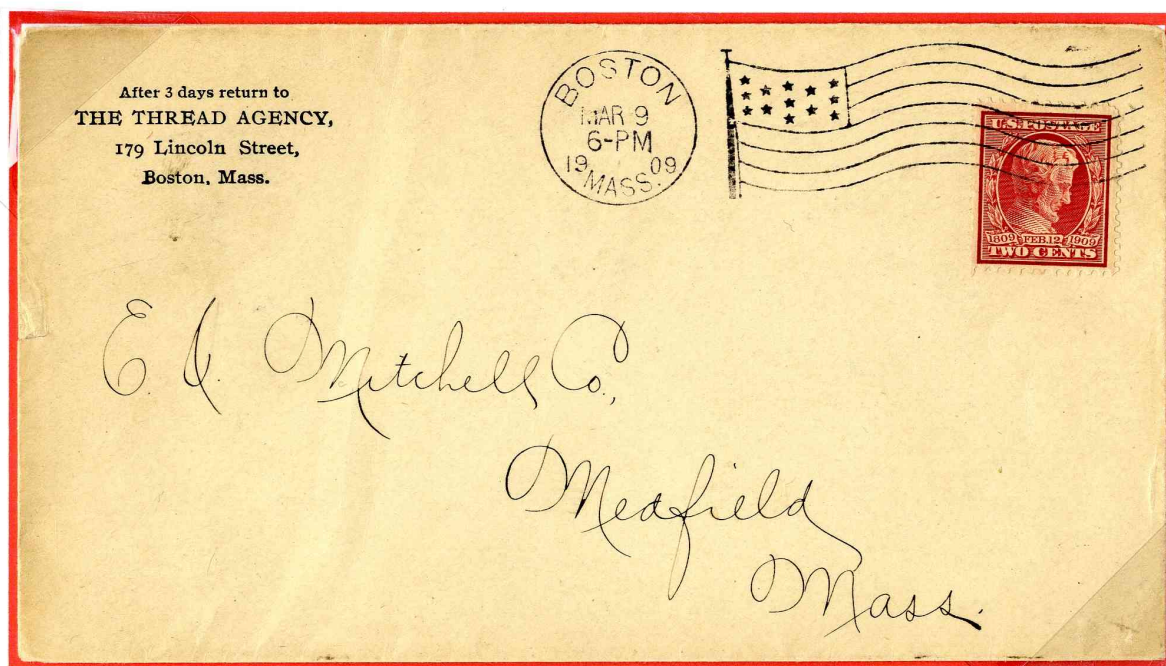 After 3 days return to
THE THREAD AGENCY,
179 Lincoln Street,
Boston, Mass.
BOSTON
MAR 9
6-PM
19 09
MASS.
U.S. POSTAGE
1809 FEB. 12 1909
TWO CENTS
E. Mitchell Co.,
Medfield
Mass.